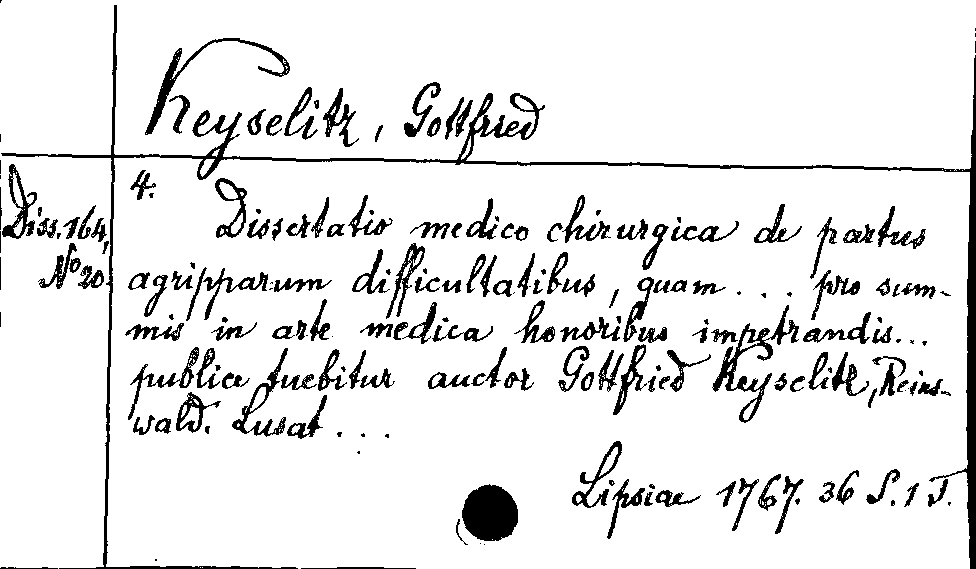 Keyselitz, Gottfried
4.
Diss. 164,
No 20.
Dissertatio medico chirurgica de partus
agripparum difficultatibus, quam... pro sum-
mis in arte medica honoribus impetrandis...
publice tuebitur auctor Gottfried Keyselitz, Reins-
wald. Lusat...
Lipsiae 1767. 36 S. 1 T.